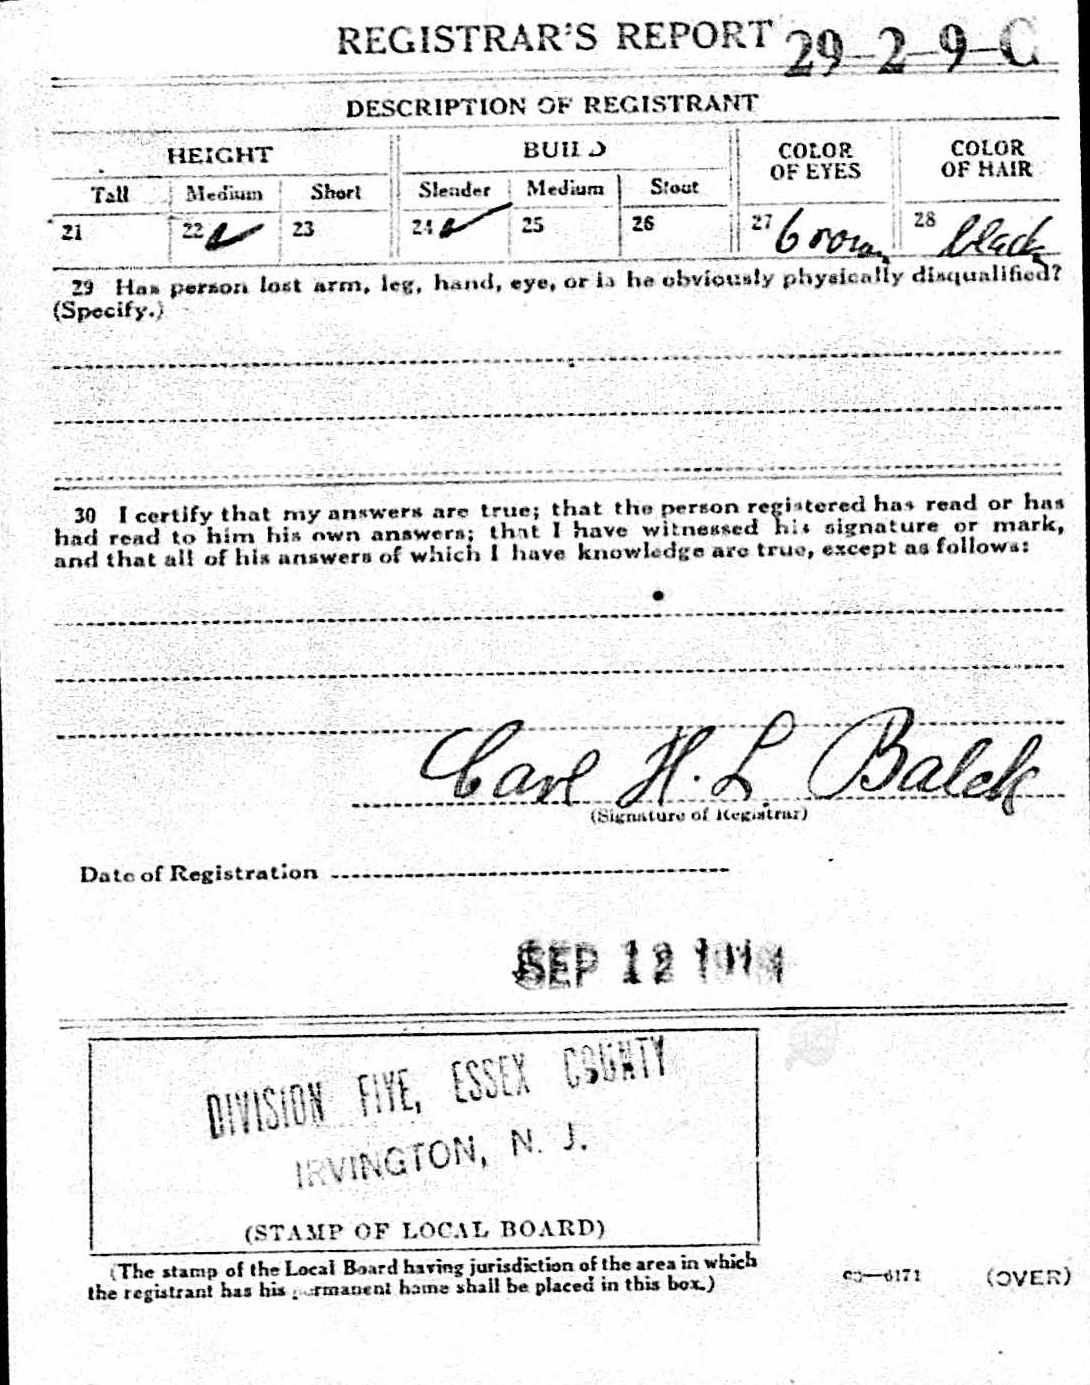 REGISTRAR'S REPORT 29-2-9-C
DESCRIPTION OF REGISTRANT
HEIGHT BUILD COLOR OF EYES COLOR OF HAIR
Tall Medium Short Slender Medium Stout
21 22 ✓ 23 24 ✓ 25 26 27 brown 28 black
29 Has person lost arm, leg, hand, eye, or is he obviously physically disqualified?
(Specify.)
30 I certify that my answers are true; that the person registered has read or has
had read to him his own answers; that I have witnessed his signature or mark,
and that all of his answers of which I have knowledge are true, except as follows:
Carl H. L. Balch
(Signature of Registrar)
Date of Registration
SEP 12
DIVISION FIVE, ESSEX COUNTY
IRVINGTON, N. J.
(STAMP OF LOCAL BOARD)
(The stamp of the Local Board having jurisdiction of the area in which
the registrant has his permanent home shall be placed in this box.)
03—6171 (OVER)